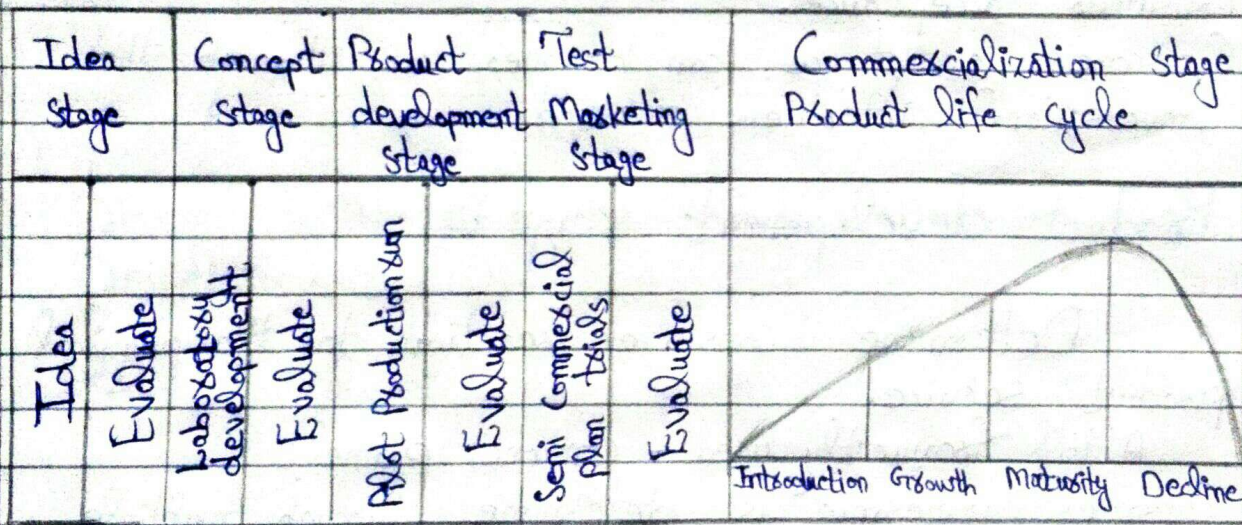 Idea
Stage
Concept
stage
Product
development
stage
Test
Marketing
stage
Commercialization Stage
Product life cycle
Idea
Evaluate
Laboratory
development
Evaluate
Pilot Production run
Evaluate
Semi Commercial
plan trials
Evaluate
Introduction Growth Maturity Decline